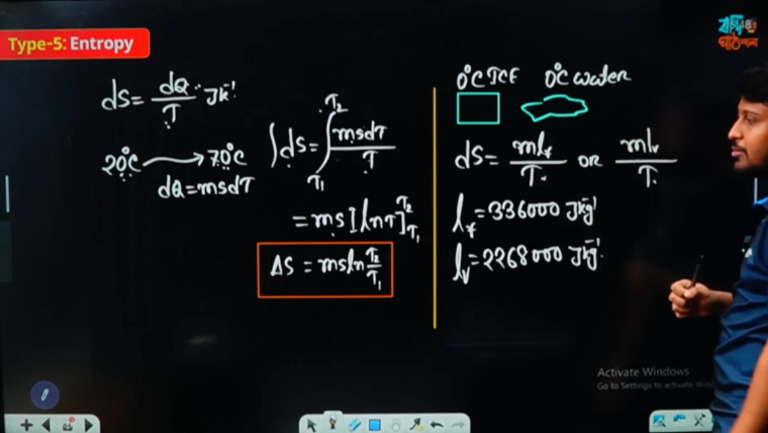 Type-5: Entropy
বাড়ির
পাঠশালা
dS = dQ/T JK⁻¹
20°C → 70°C
dQ = msdT
∫dS = ∫_{T₁}^{T₂} msdT/T
= ms[lnT]_{T₁}^{T₂}
ΔS = msln T₂/T₁
0°C ICE 0°C water
dS = ml_f/T OR ml_v/T
l_f = 336000 Jkg⁻¹
l_v = 2268000 Jkg⁻¹
Activate Windows
Go to Settings to activate Win